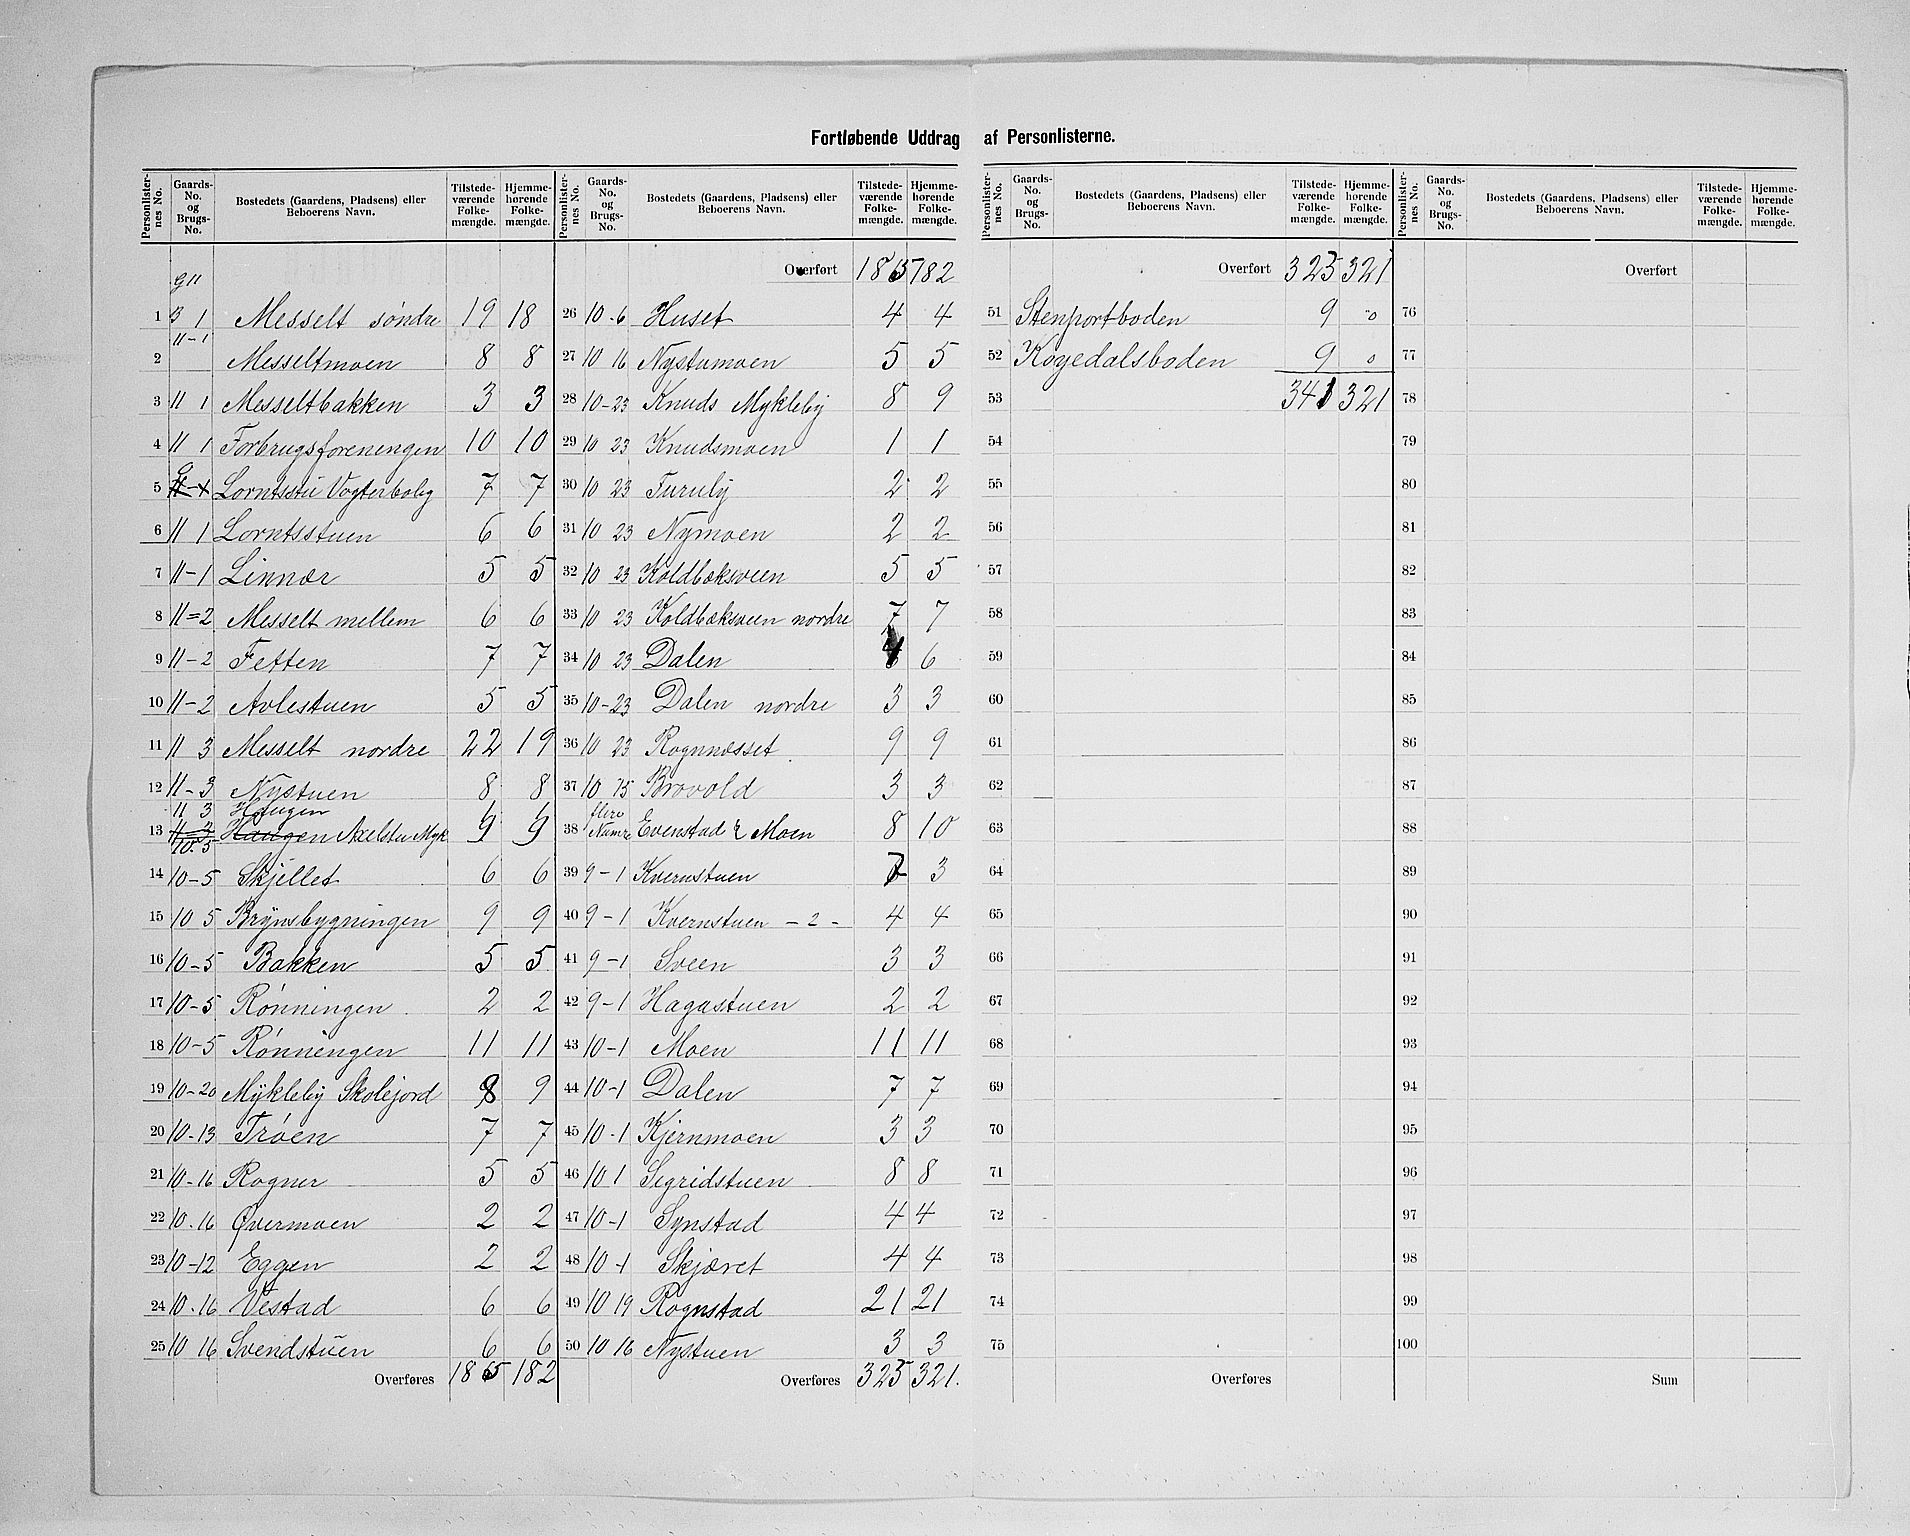 Fortløbende Uddrag af Personlisterne.
Personlister-nes No. Gaards-No. og Brugs-No. Bostedets (Gaardens, Pladsens) eller Beboerens Navn. Tilstede-værende Folke-mængde. Hjemme-hørende Folke-mængde.
g 11
1 3 1 Messelt søndre 19 18
11-1
2 Messeltmoen 8 8
3 11 1 Messeltbakken 3 3
4 11 1 Forbrugsforeningen 10 10
5 Lorntsstu Vogterbolig 7 7
6 11 1 Lorntsstuen 6 6
7 11-1 Linnær 5 5
8 11=2 Messelt mellem 6 6
9 11-2 Fetten 7 7
10 11-2 Avlestuen 5 5
11 11 3 Messelt nordre 22 19
12 11-3 Nystuen 8 8
11 3 Haugen 6 6
13 10.5 Haugen Axelstu Myk 9 9
14 10-5 Skjellet 6 6
15 10 5 Brynsbygningen 9 9
16 10-5 Bakken 5 5
17 10-5 Rønningen 2 2
18 10-5 Rønningen 11 11
19 10-20 Mykleby Skolejord 8 9
20 10-13 Trøen 7 7
21 10-16 Rogner 5 5
22 10.16 Øvermoen 2 2
23 10-12 Eggen 2 2
24 10.16 Vestad 6 6
25 10 16 Svendstuen 6 6
Overføres 185 182
Personlister-nes No. Gaards-No. og Brugs-No. Bostedets (Gaardens, Pladsens) eller Beboerens Navn. Tilstede-værende Folke-mængde. Hjemme-hørende Folke-mængde.
Overført 185 182
26 10.6 Huset 4 4
27 10 16 Nystumoen 5 5
28 10-23 Knuds Mykleby 8 9
29 10 23 Knudsmoen 1 1
30 10 23 Furuly 2 2
31 10 23 Nymoen 2 2
32 10 23 Koldbæksveen 5 5
33 10 23 Koldbæksveen nordre 7 7
34 10 23 Dalen 6
35 10-23 Dalen nordre 3 3
36 10 23 Rognnæsset 9 9
37 10 15 Brovold 3 3
38 flere Numre Evenstad & Moen 8 10
39 9-1 Kvernstuen 3
40 9-1 Kvernstuen -2- 4 4
41 9-1 Sveen 3 3
42 9-1 Hagastuen 2 2
43 10-1 Moen 11 11
44 10-1 Dalen 7 7
45 10-1 Kjernmoen 3 3
46 10 1 Sigridstuen 8 8
47 10-1 Synstad 4 4
48 10-1 Skjæret 4 4
49 10 19 Rognstad 21 21
50 10 16 Nystuen 3 3
Overføres 325 321.
Personlister-nes No. Gaards-No. og Brugs-No. Bostedets (Gaardens, Pladsens) eller Beboerens Navn. Tilstede-værende Folke-mængde. Hjemme-hørende Folke-mængde.
Overført 323 321
51 Stenportboden 9 "o
52 Kogedalsboden 9 o
53 341 321
54
55
56
57
58
59
60
61
62
63
64
65
66
67
68
69
70
71
72
73
74
75
Overføres
Personlister-nes No. Gaards-No. og Brugs-No. Bostedets (Gaardens, Pladsens) eller Beboerens Navn. Tilstede-værende Folke-mængde. Hjemme-hørende Folke-mængde.
Overført
76
77
78
79
80
81
82
83
84
85
86
87
88
89
90
91
92
93
94
95
96
97
98
99
100
Sum